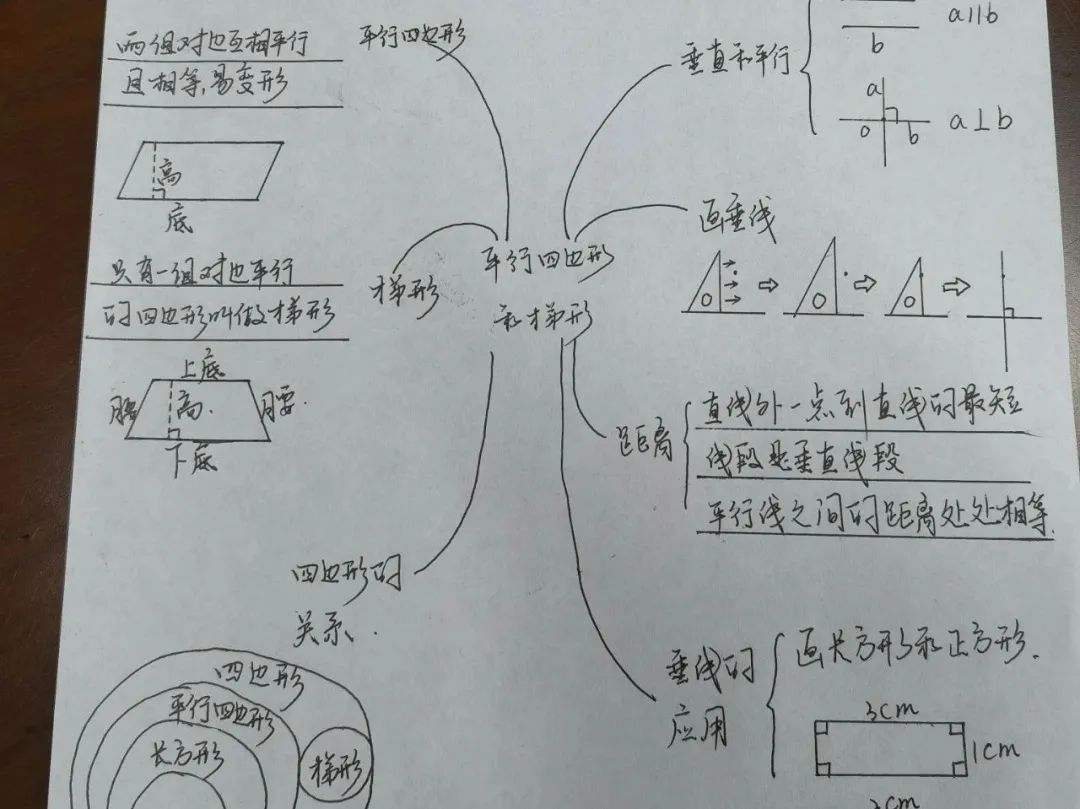 平行四边形
和梯形
平行四边形
两组对边互相平行
且相等,易变形
高
底
梯形
只有一组对边平行
的四边形叫做梯形
上底
腰
高.
腰
下底
四边形的
关系.
四边形
平行四边形
长方形
梯形
垂直和平行
a∥b
b
a
o
b
a⊥b
画垂线
距离
直线外一点到直线的最短
线段是垂直线段
平行线之间的距离处处相等.
垂线的
应用
画长方形和正方形.
3cm
1cm
3cm